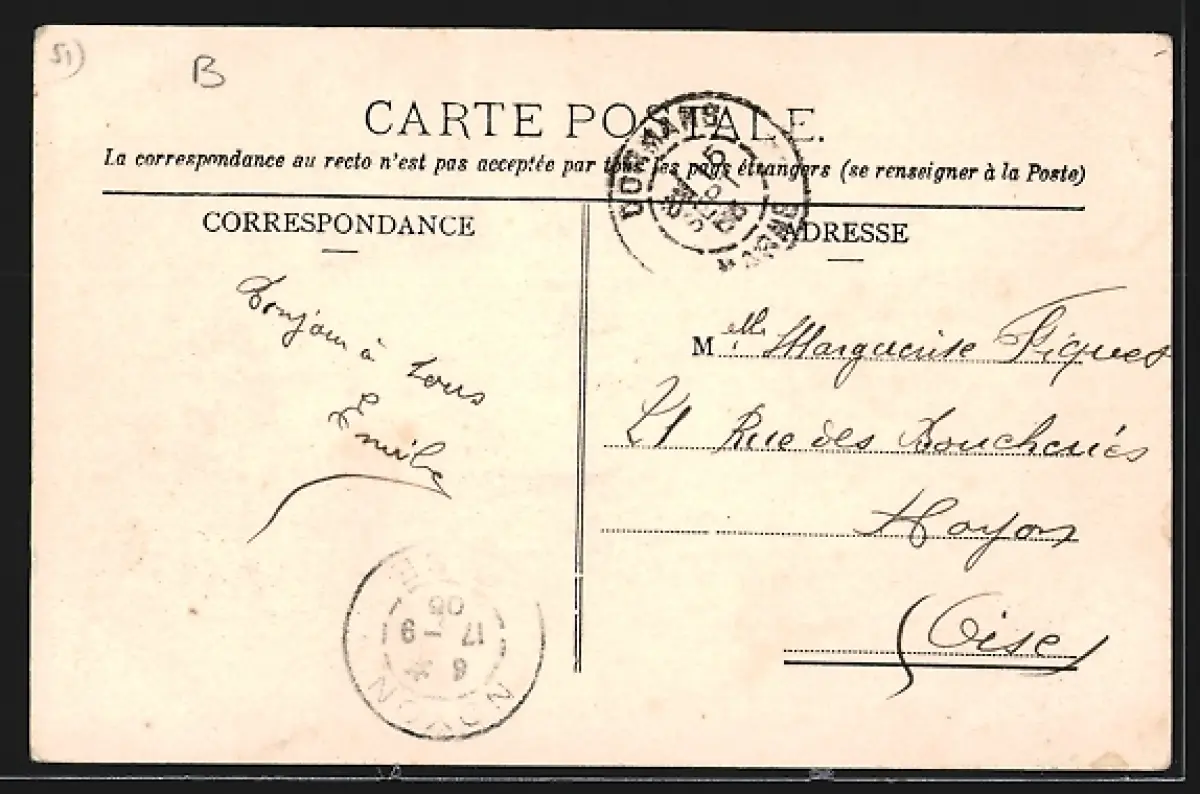 51)
B
CARTE POSTALE.
La correspondance au recto n'est pas acceptée par tous les pays étrangers (se renseigner à la Poste)
DORMANS
MARNE
CORRESPONDANCE
Bonjour à
tous
Emile
ADRESSE
Melle Marguerite Fiquet
21 Rue des Boucheries
Noyon
(Oise)
NOYON
6
17 - 9
05